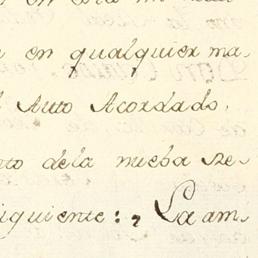 en qualquier ma
Auto Acordado,
nto dela nueba Re
iguiente: , La am